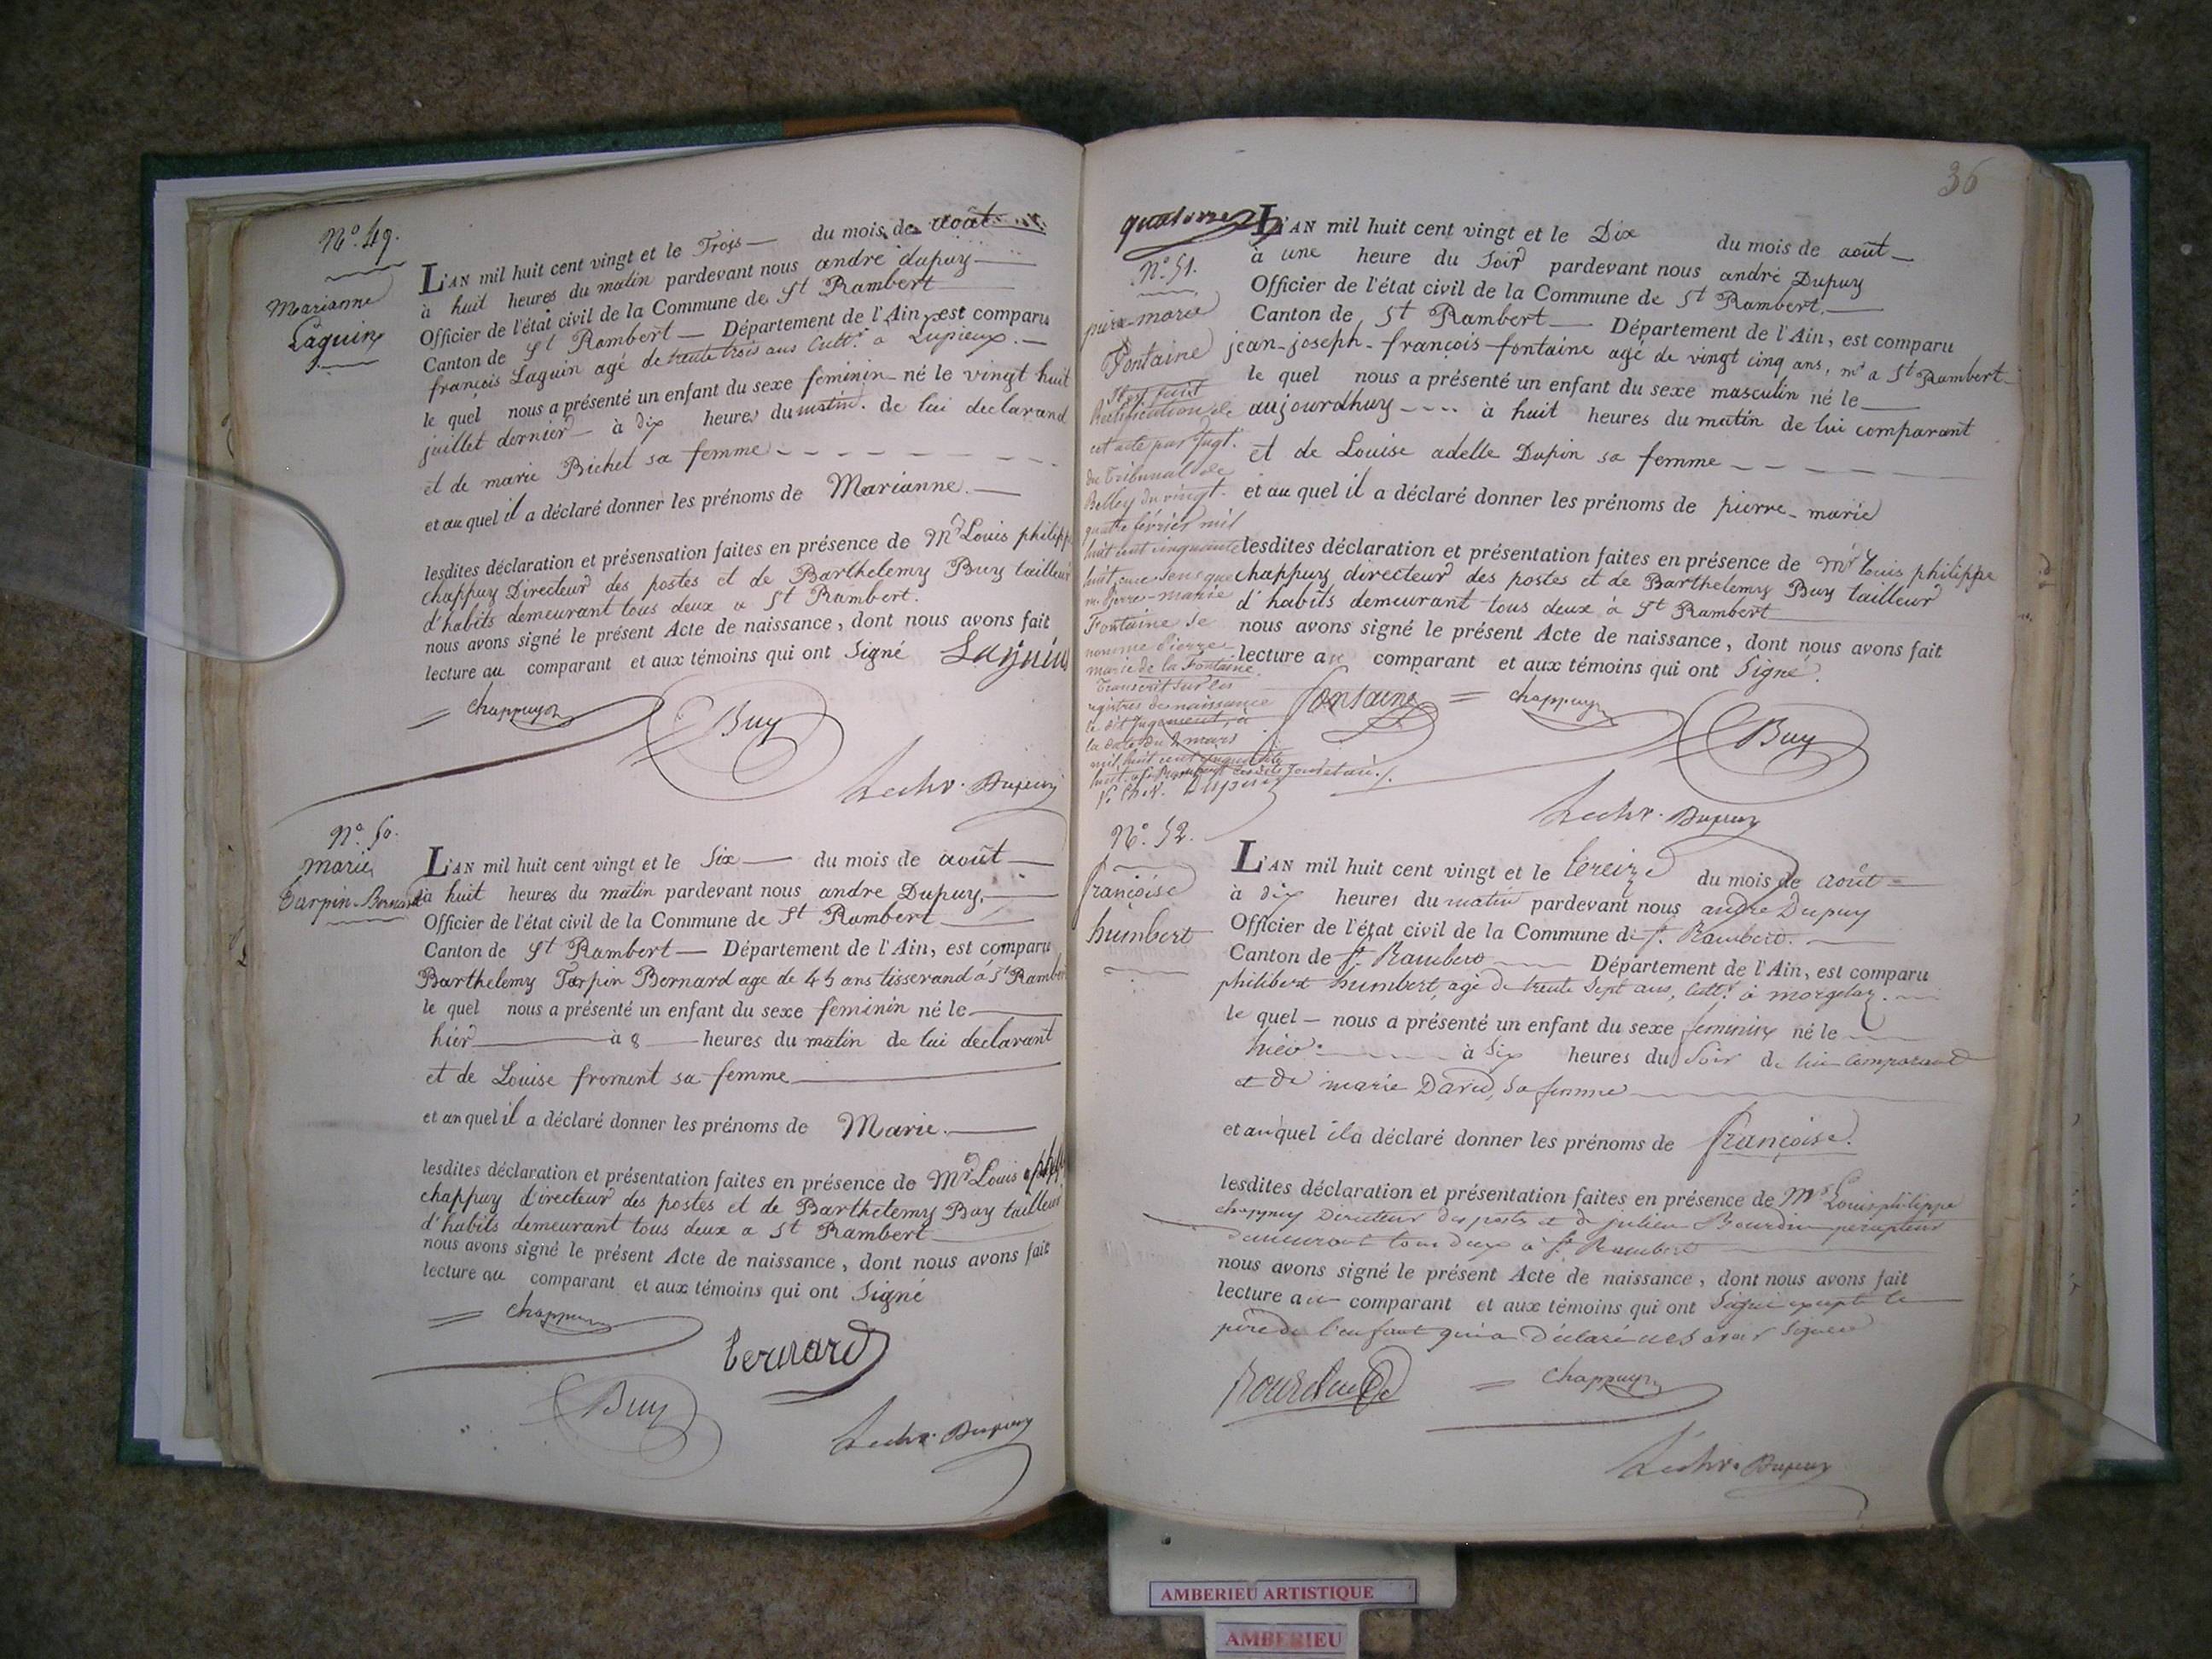 N.º 49.
Marianne
Laguin
L'AN mil huit cent vingt et le Trois — du mois de août
à huit heures du matin pardevant nous andré dupuy
Officier de l'état civil de la Commune de St Rambert
Canton de St Rambert — Département de l'Ain, est comparu
françois Laguin agé de trente trois ans Cultr. à Lupieux. —
le quel nous a présenté un enfant du sexe féminin né le vingt huit
juillet dernier — à dix heures du matin. de lui declarand
et de marie Bichel sa femme
et au quel il a déclaré donner les prénoms de Marianne. —
lesdites déclaration et présensation faites en présence de Mr Louis philippe
chappuy Directeur des postes et de Barthelemy Buy tailleur
d'habits demeurant tous deux a St Rambert.
nous avons signé le présent Acte de naissance, dont nous avons fait
lecture au comparant et aux témoins qui ont Signé Laguin
chappuy
Buy
Lechr. Dupuy
Nº. 50.
marie
Tarpin-Bernard
L'AN mil huit cent vingt et le Six — du mois de août —
à huit heures du matin pardevant nous andre Dupuy,
Officier de l'état civil de la Commune de St Rambert
Canton de St Rambert — Département de l'Ain, est comparu
Barthelemy Tarpin Bernard age de 45 ans tisserand à St Rambert
le quel nous a présenté un enfant du sexe féminin né le
hier — à 8 — heures du matin de lui declarant
et de Louise froment sa femme
et au quel il a déclaré donner les prénoms de Marie. —
lesdites déclaration et présentation faites en présence de Mr Louis
chappuy directeur des postes et de Barthelemy Buy tailleur
d'habits demeurant tous deux a St Rambert
nous avons signé le présent Acte de naissance, dont nous avons fait
lecture au comparant et aux témoins qui ont Signé
chappuy
bernard
Buy
Lechr. Dupuy
36
quatorze
Nº. 51.
pierre-marie
Fontaine
L'AN mil huit cent vingt et le Dix du mois de août —
à une heure du Soir pardevant nous andré Dupuy
Officier de l'état civil de la Commune de St Rambert. —
Canton de St Rambert — Département de l'Ain, est comparu
jean-joseph-françois-fontaine agé de vingt cinq ans, md a St Rambert
le quel nous a présenté un enfant du sexe masculin né le —
aujourdhuy - - - - à huit heures du matin de lui comparant
et de Louise adelle Dupin sa femme
et au quel il a déclaré donner les prénoms de pierre-marie
lesdites déclaration et présentation faites en présence de Mr Louis philippe
chappuy directeur des postes et de Barthelemy Buy tailleur
d'habits demeurant tous deux à St Rambert
nous avons signé le présent Acte de naissance, dont nous avons fait
lecture au comparant et aux témoins qui ont Signé.
fontaine
chappuy
Buy
Lechr. Dupuy
Il est fait
Rectification de
cet acte par Jugt.
du Tribunal de
Belley du vingt-
quatre février mil
huit cent cinquante
huit, en ce sens que
m. Pierre-Marie
Fontaine se
nomme Pierre
marie de la Fontaine.
Transcrit sur les
registres de naissance
le dit Jugement, à
la date du 2 mars
mil huit cent cinquante
huit
Dupuy
Nº. 52.
françoise
humbert
L'AN mil huit cent vingt et le treize du mois de août
à dix heures du matin pardevant nous andre Dupuy
Officier de l'état civil de la Commune de St. Rambert. —
Canton de St. Rambert — Département de l'Ain, est comparu
philibert humbert, agé de trente Sept ans, Cultr. à morgelaz.
le quel — nous a présenté un enfant du sexe feminin né le
hier à Six heures du Soir de lui comparant
et de marie David, sa femme
et au quel il a déclaré donner les prénoms de françoise.
lesdites déclaration et présentation faites en présence de Mr Louis philippe
chappuy Directeur des postes et de julien Bourdin percepteur
demeurant tous deux à St. Rambert
nous avons signé le présent Acte de naissance, dont nous avons fait
lecture au comparant et aux témoins qui ont Signé excepté le
père de l'enfant qui a déclaré ne Savoir Signer
chappuy
Lechr. Dupuy
AMBERIEU ARTISTIQUE
AMBERIEU